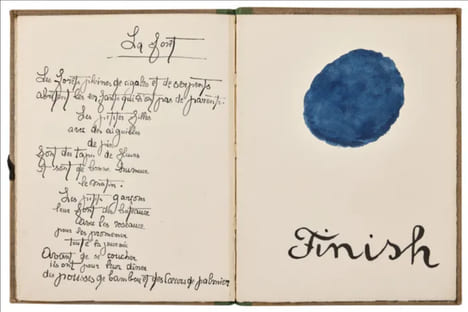 La forêt
Les forêts pleines de cigales et de serpents
abritent les enfants qui n'ont pas de parents.
Les petites filles
avec des aiguilles
de pin
font des tapis de fleurs
et sont de bonne humeur
le matin.
Les petits garçons
leur font des
avec les roseaux
pour les promener
toute la journée
Avant de se coucher
ils ont pour leur dîner
des pousses de bambou et des cœurs de palmier
Finish